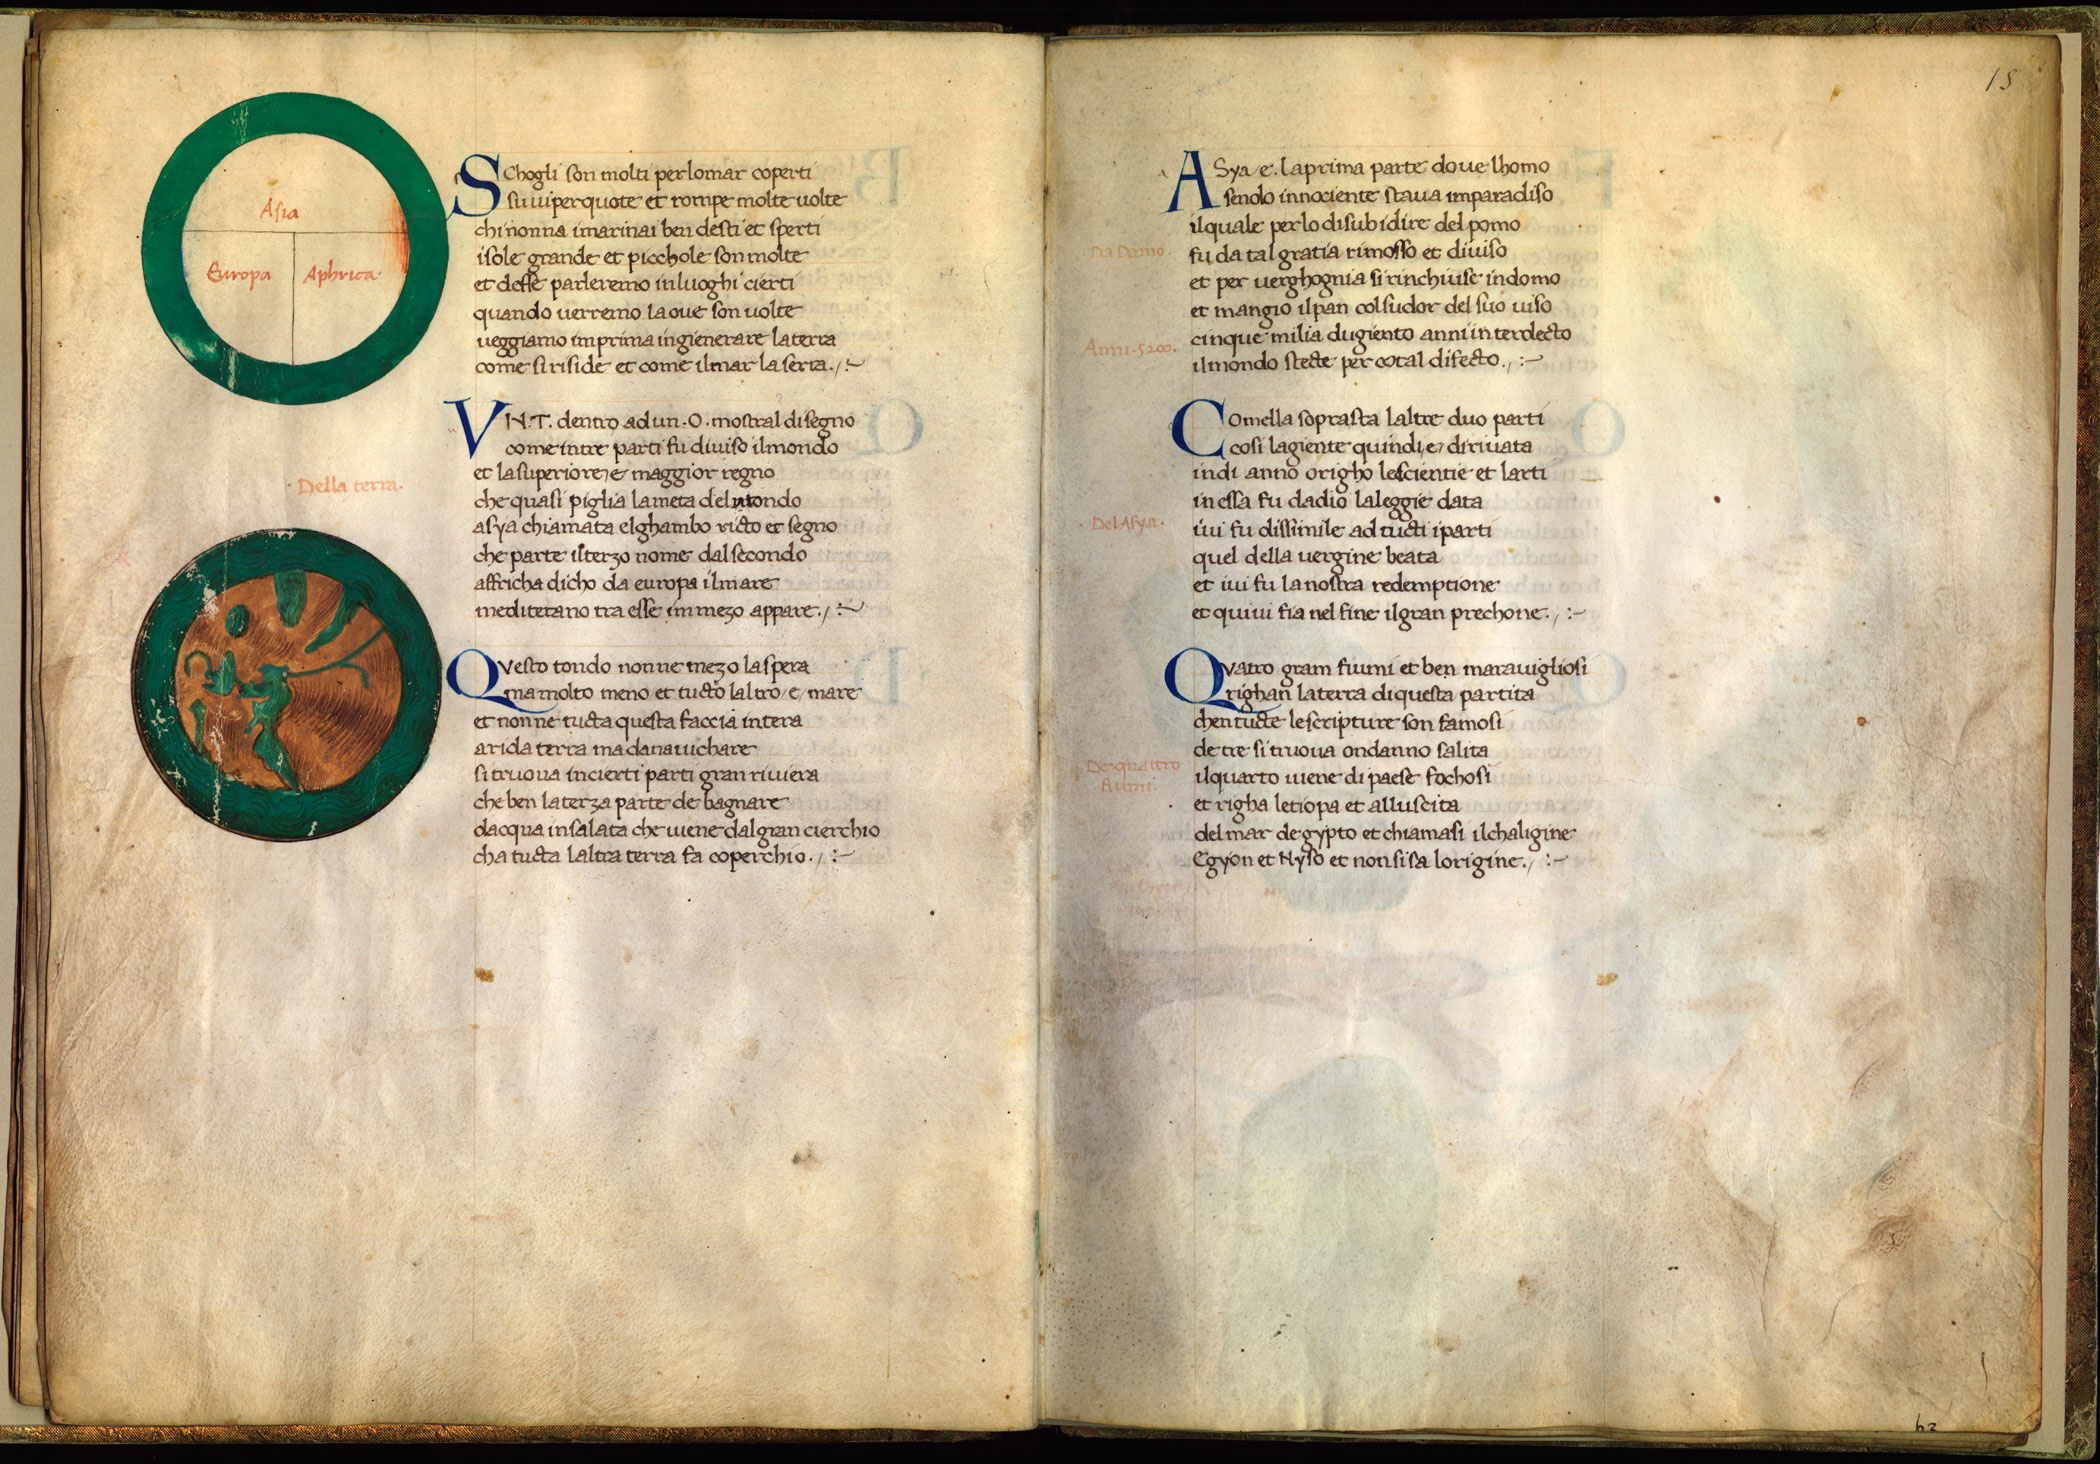 Asia
Europa
Aphrica.
SChogli son molti perlomar coperti
su uiperquote et rompe molte uolte
chi nonna imarinai ben desti et sperti
isole grande et picchole son molte
et desse parleremo inluoghi cierti
quando uerremo laoue son uolte
ueggiamo imprima ingienerare laterra
come si risiede et come ilmar laserra., :~
VN.T. dentro adun.O. mostral disegno
come intre parti fu diuiso ilmondo
et lasuperiore, e maggior regno
che quasi piglia lameta delmondo
asya chiamata elghambo ricto et segno
che parte ilterzo nome dalsecondo
affricha dicho da europa ilmare
mediterano tra esse immezo appare., :~
.Della terra.
QVesto tondo nonne mezo laspera
ma molto meno et tucto laltro, e, mare
et nonne tucta questa faccia intera
arida terra ma danauichare
si truoua incierti parti gran riuiera
che ben laterza parte de bagnare
dacqua insalata che uiene dalgran cierchio
cha tucta laltra terra fa coperchio., :~
15
ASya, e. laprima parte doue lhomo
sendo innociente staua imparadiso
ilquale perlo disubidire del pomo
.Da Damo.
fu da tal gratia rimosso et diuiso
et per uerghognia si rinchiuse indomo
et mangio ilpan colsudor del suo uiso
Anni.5200.
cinque milia dugiento anni interdecto
ilmondo stecte per cotal difecto., :~
COmella soprasta laltre duo parti
cosi lagiente quindi, e, diriuata
indi anno origho lescientie et larti
in essa fu dadio laleggie data
.Del Asya.
iui fu dissimile ad tucti iparti
quel della uergine beata
et iui fu lanostra redemptione
et quiui fia nel fine ilgran prechone., :~
QVatro gram fiumi et ben marauigliosi
righan laterra di questa partita
chen tucte lescripture son famosi
de tre si truoua ondanno salita
De quattro
fiumi.
ilquarto uiene di paese fochosi
et righa letiopa et alluscita
del mar degypto et chiamasi ilchaligine
Egyon et Nylo et non si sa lorigine., :~
b3